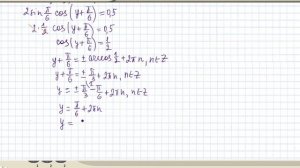 2 sin π/6 cos(y + π/6) = 0,5
2 · 1/2 cos(y + π/6) = 0,5
cos(y + π/6) = 1/2
y + π/6 = ± arccos 1/2 + 2πn, n∈Z
y + π/6 = ± π/3 + 2πn, n∈Z
y = ± π/3 - π/6 + 2πn, n∈Z
y = π/6 + 2πn
y =